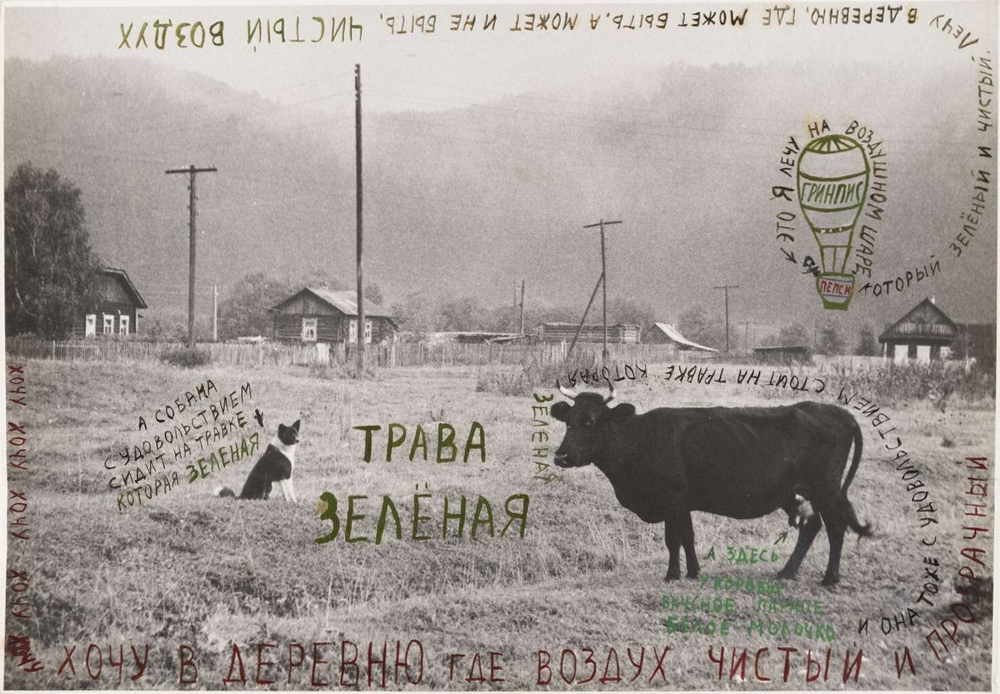 ЭТО Я ЛЕЧУ НА ВОЗДУШНОМ ШАРЕ
КОТОРЫЙ ЗЕЛЁНЫЙ И ЧИСТЫЙ.
ЛЕЧУ В ДЕРЕВНЮ, ГДЕ МОЖЕТ БЫТЬ, А МОЖЕТ И НЕ БЫТЬ, ЧИСТЫЙ ВОЗДУХ
ГРИНПИС
ПЕПСИ
А СОБАКА
С УДОВОЛЬСТВИЕМ
СИДИТ НА ТРАВКЕ
КОТОРАЯ ЗЕЛЕНАЯ
ТРАВА
ЗЕЛЁНАЯ
И ОНА ТОЖЕ С УДОВОЛЬСТВИЕМ СТОИТ НА ТРАВКЕ КОТОРАЯ
ЗЕЛЕНАЯ
А ЗДЕСЬ
У КОРОВЫ
ВКУСНОЕ ПАРНОЕ
БЕЛОЕ МОЛОЧКО
ХОЧУ ХОЧУ ХОЧУ ХОЧУ ХОЧУ
ХОЧУ В ДЕРЕВНЮ ГДЕ ВОЗДУХ ЧИСТЫЙ И ПРОЗРАЧНЫЙ